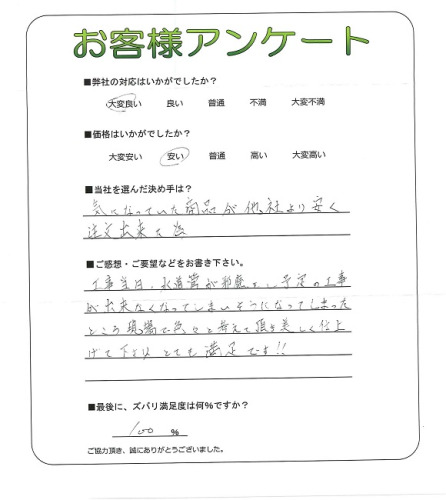 お客様アンケート
■弊社の対応はいかがでしたか?
大変良い 良い 普通 不満 大変不満
■価格はいかがでしたか?
大変安い 安い 普通 高い 大変高い
■当社を選んだ決め手は?
気になっていた商品が他社より安く
注文出来た
■ご感想・ご要望などをお書き下さい。
工事当日、水道管が邪魔をし予定の工事
が出来なくなってしまいそうになってしまった
ところ現場で色々と考えて頂き美しく仕上
げて下さり とても満足です!!
■最後に、ズバリ満足度は何%ですか?
100 %
ご協力頂き、誠にありがとうございました。